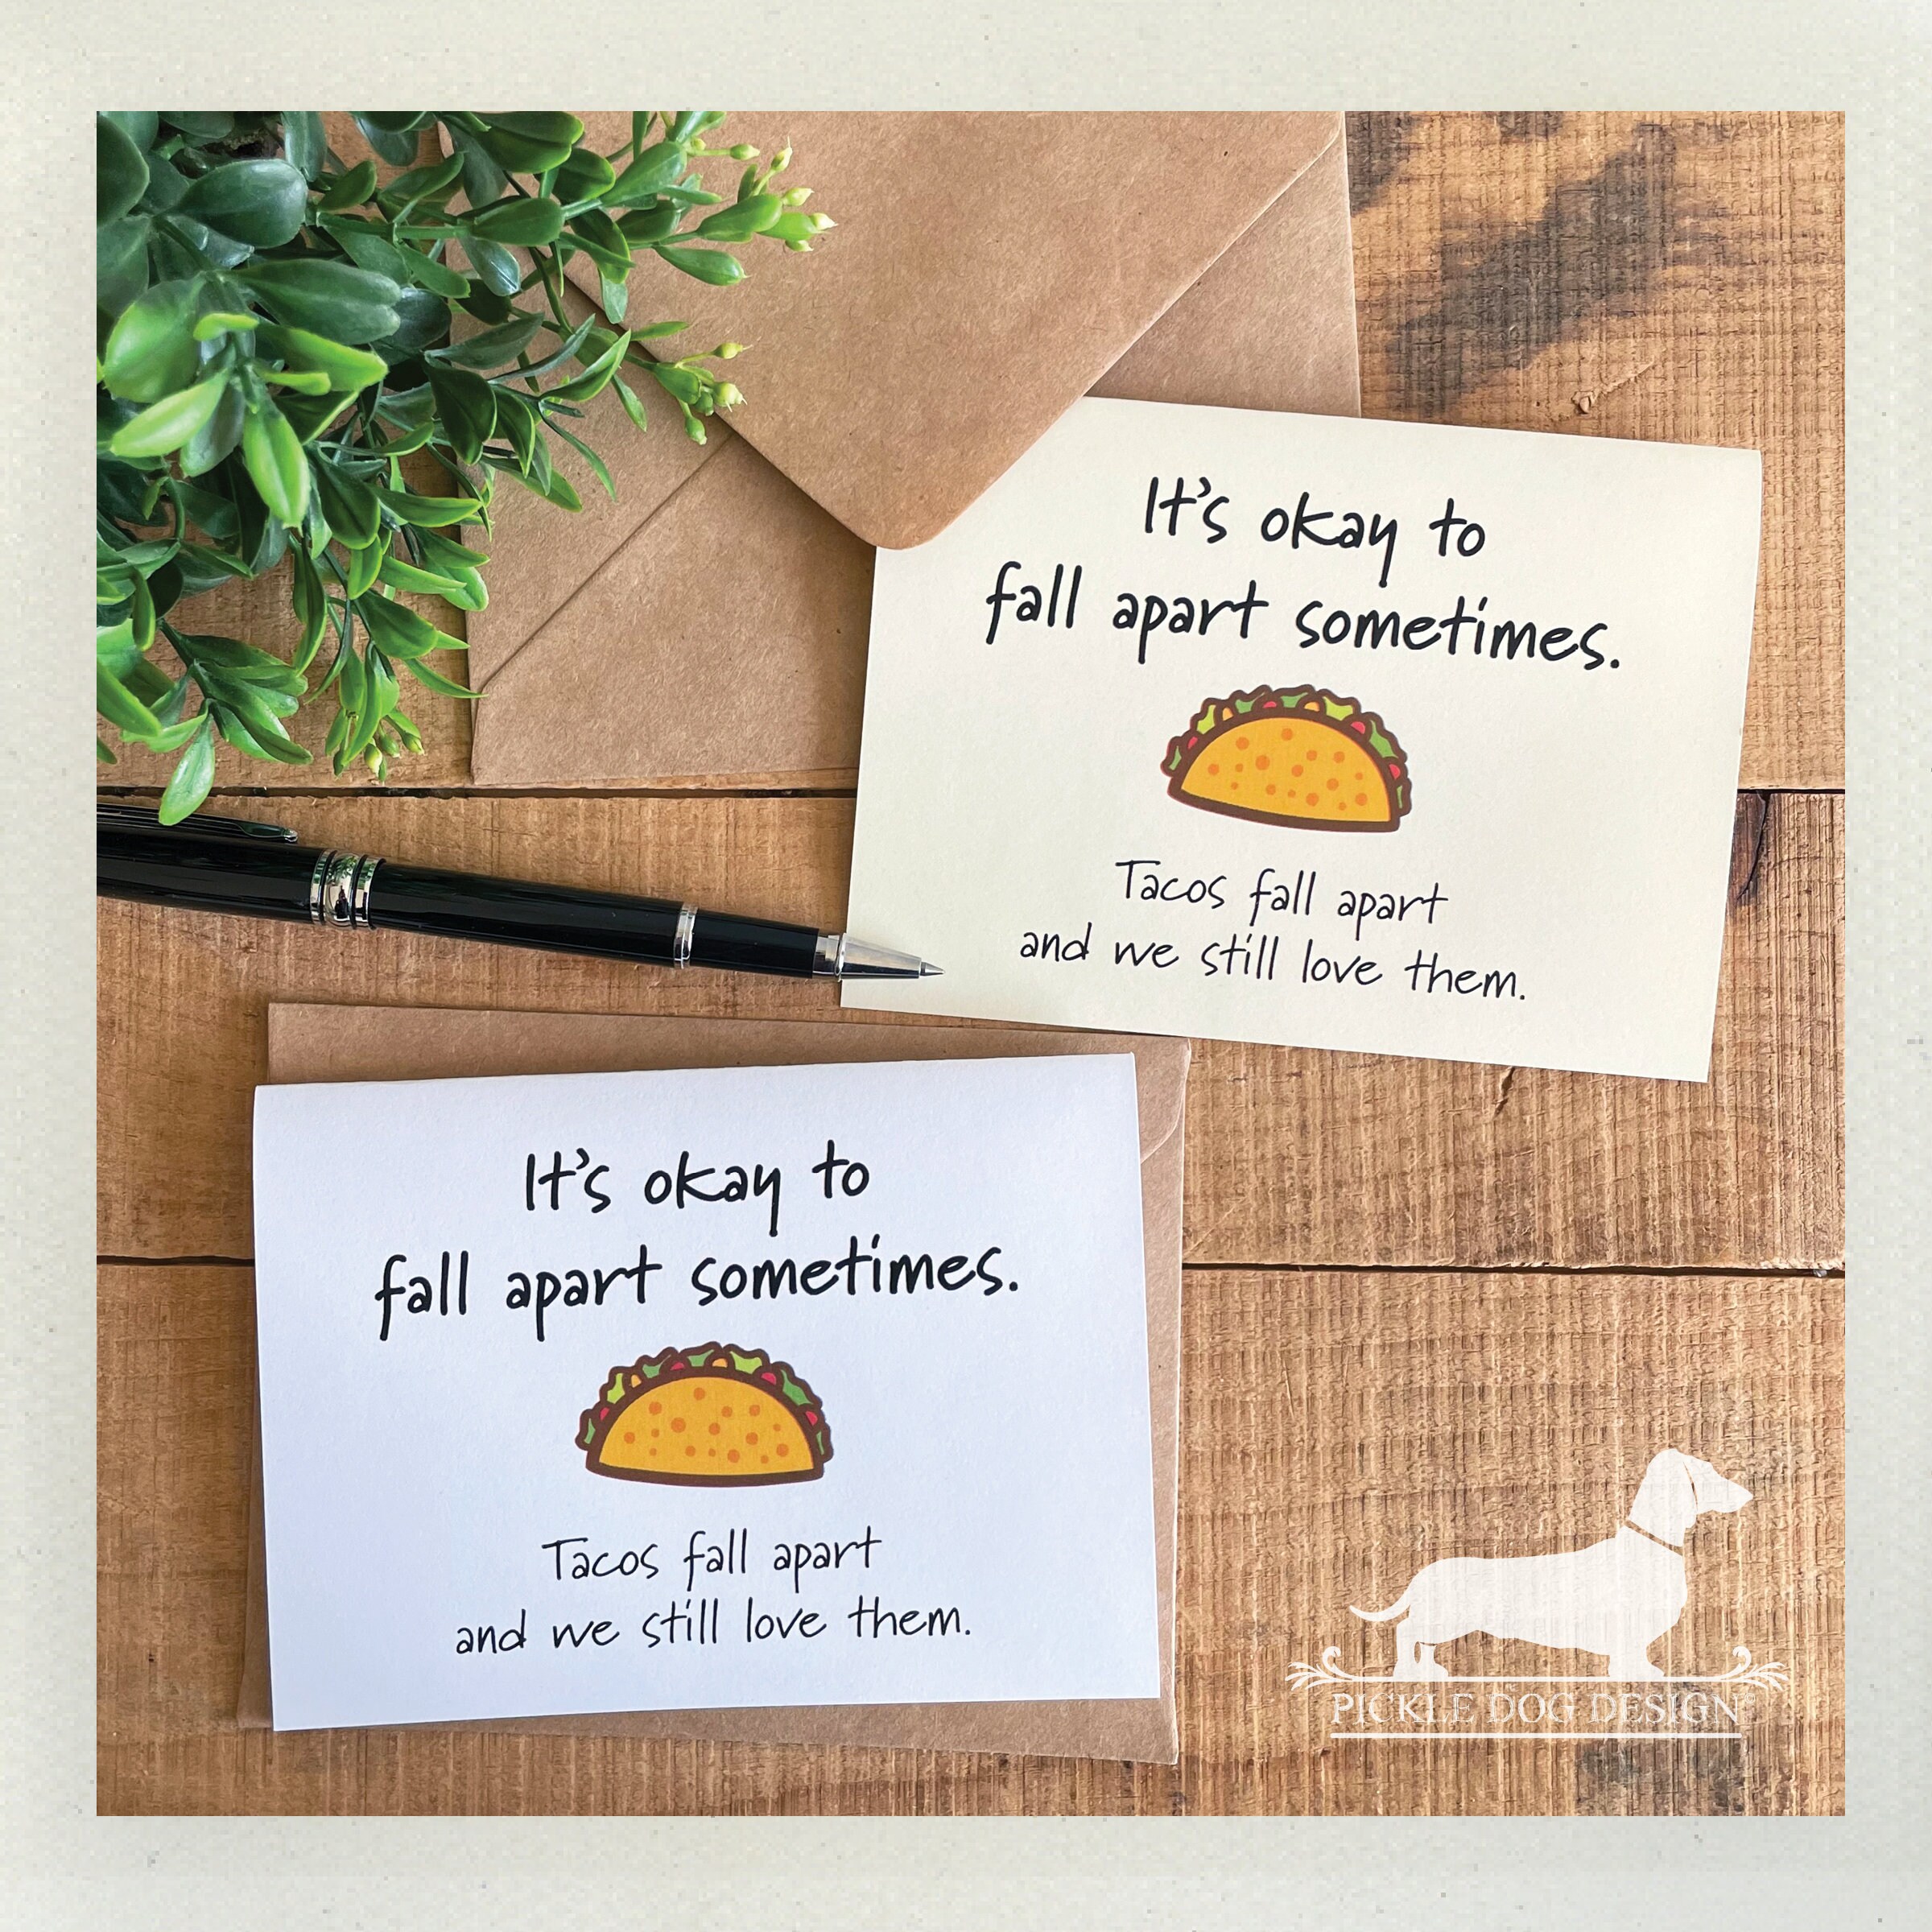 It's okay to
fall apart sometimes.
Tacos fall apart
and we still love them.
It's okay to
fall apart sometimes.
Tacos fall apart
and we still love them.
PICKLE DOG DESIGN